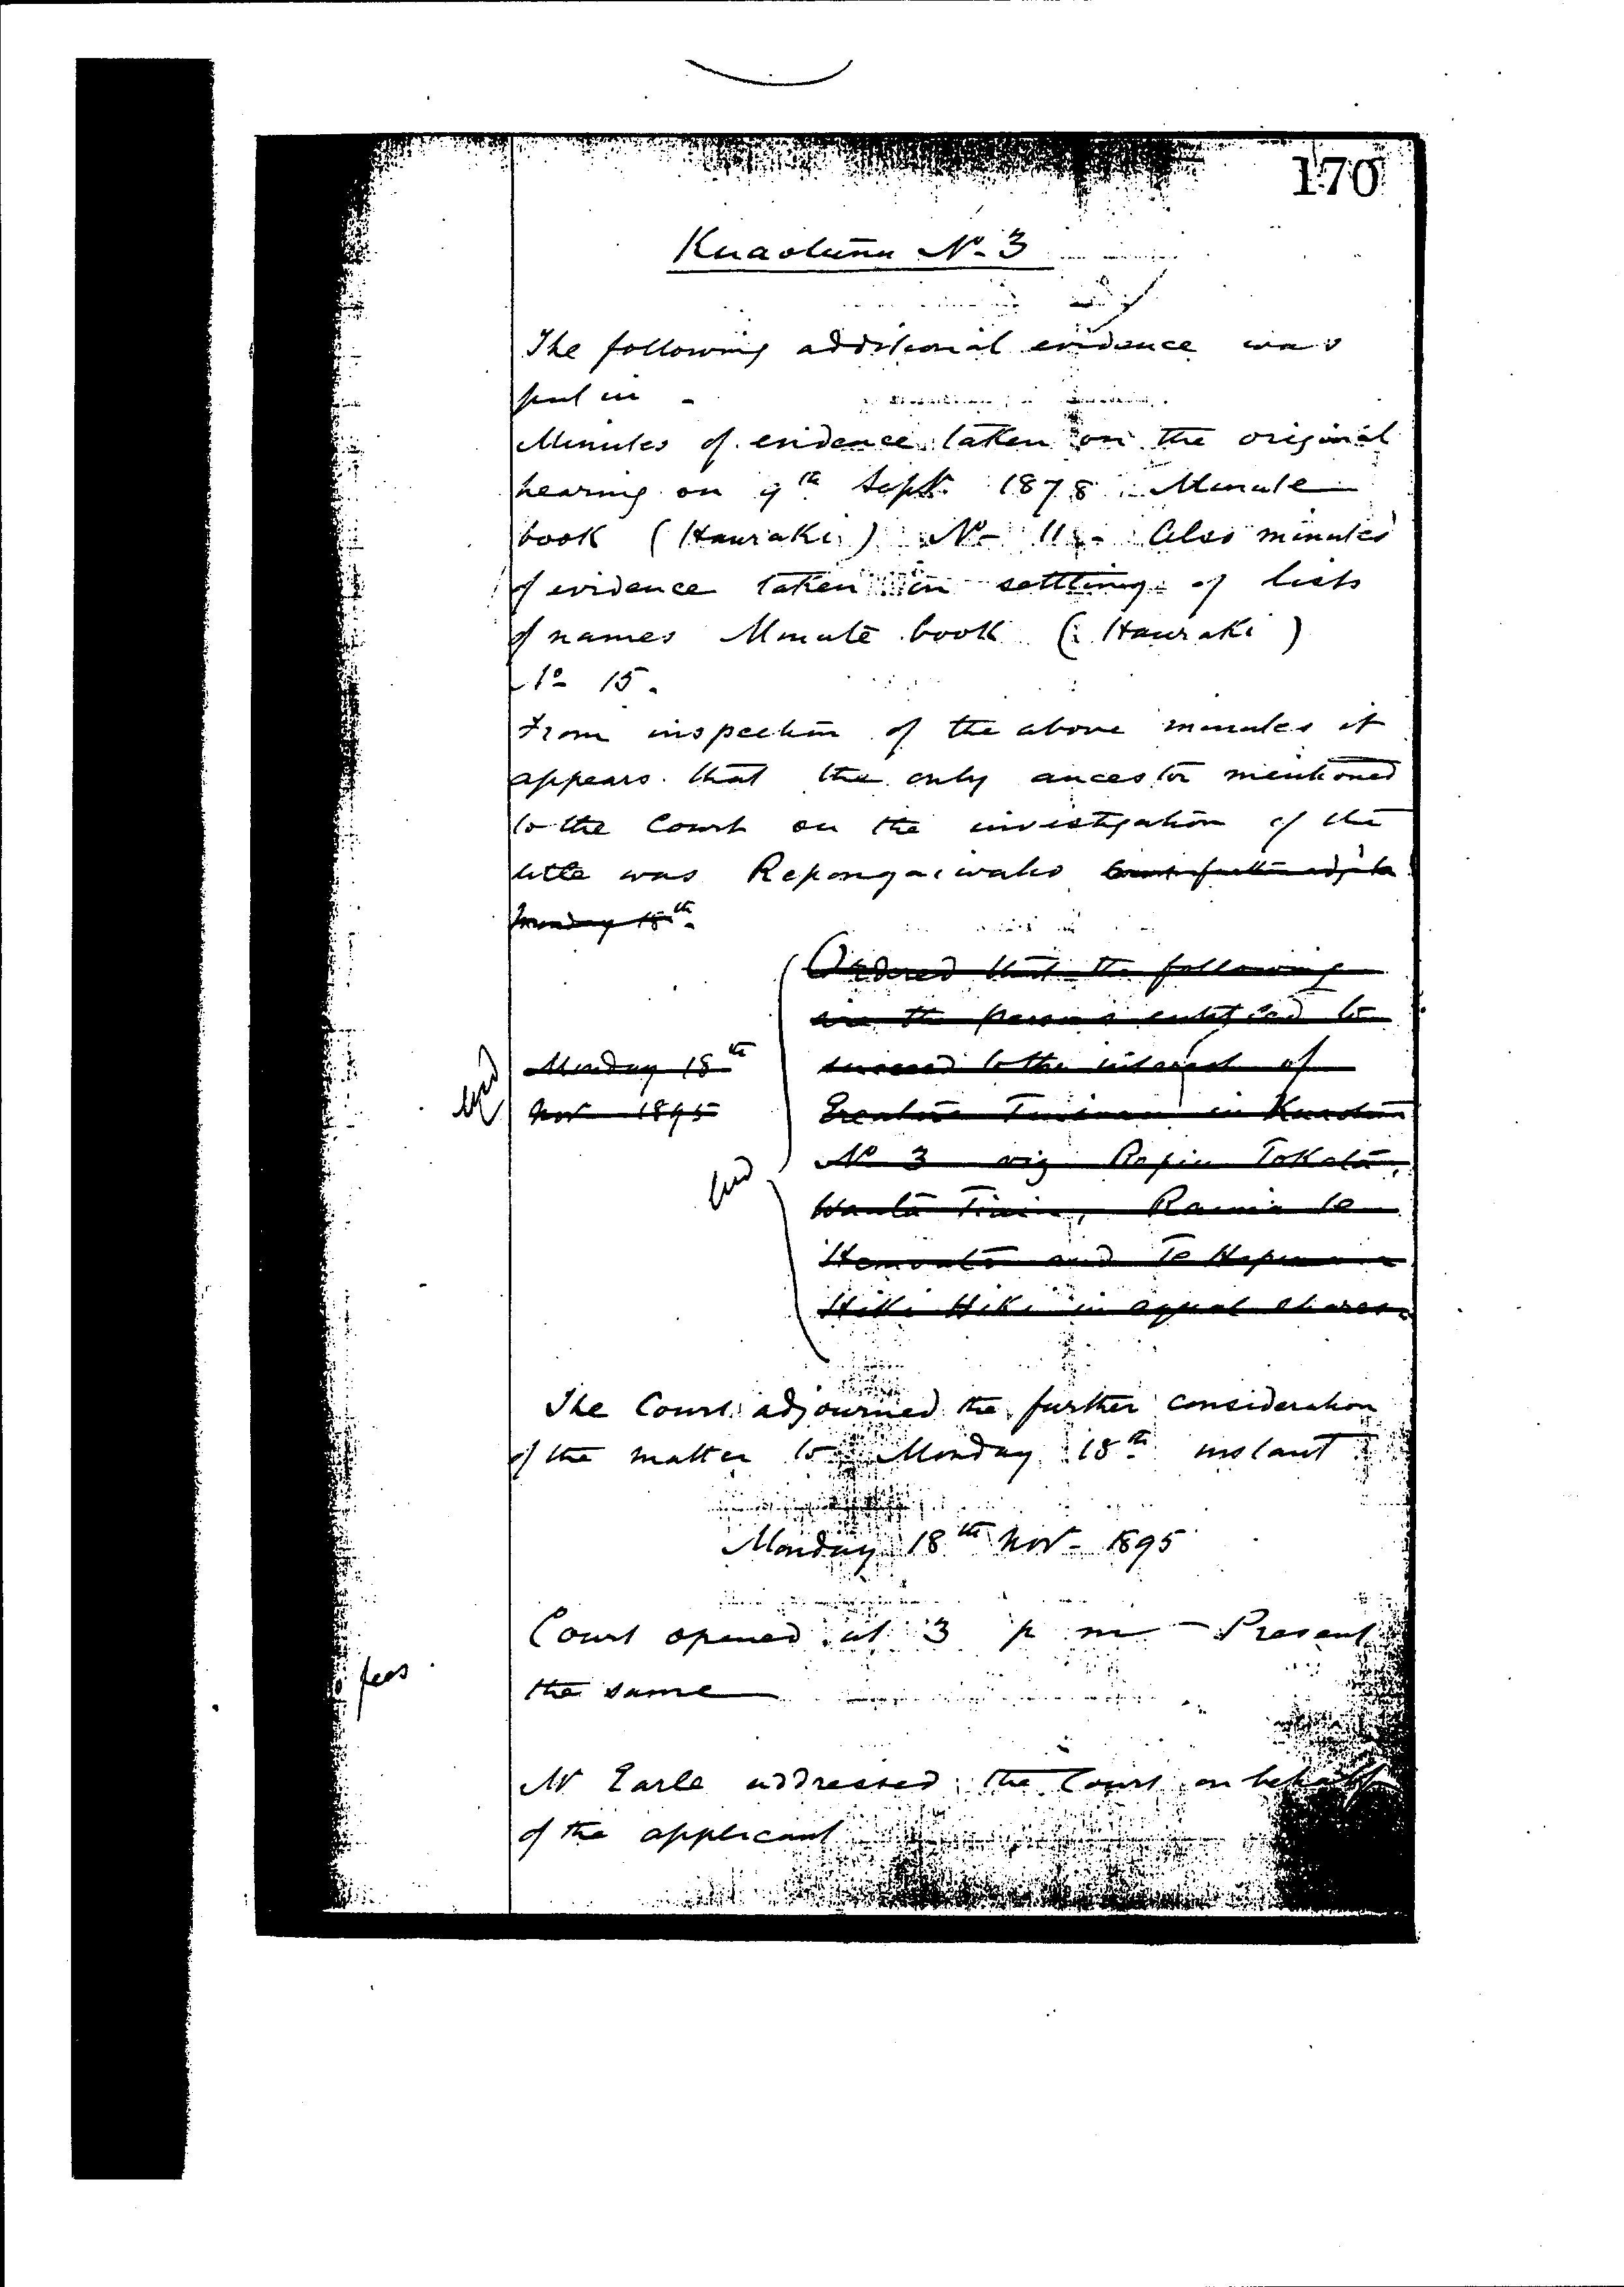 170
Kuaotunu No. 3
The following additional evidence was
put in -
Minutes of evidence taken on the original
hearing on 9th Sept. 1878 Minute
book (Hauraki) No- 11 - Also minutes
of evidence taken in settling of lists
of names Minute book (Hauraki)
No 15.
From inspection of the above minutes it
appears that the only ancestor mentioned
to the Court on the investigation of the
title was Repongaiwaho
Monday 18th
Ordered that the following
are the persons entitled to
Monday 18th
succeed to the interest of
Nov 1895
in Kuaotunu
No 3 viz Ropiu Tokota,
and Te
Hiki Hiki in equal shares.
The Court adjourned the further consideration
of the matter to Monday 18th instant
Monday 18th Nov- 1895
Court opened at 3 p m - Present
the same
fees
Mr Earle addressed the Court on behalf
of the applicant